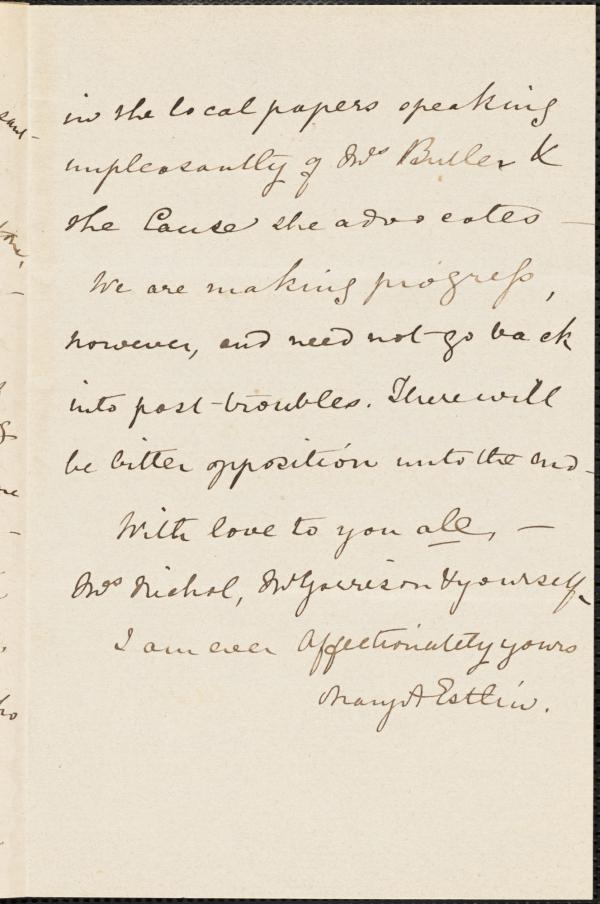 in the local papers speaking
unpleasantly of Mrs Butler &
the Cause she advocates —
We are making progress,
however, and need not go back
into past troubles. There will
be bitter opposition unto the end –
With love to you all, —
Mrs Nichol, Mr Garrison & yourself,
I am ever Affectionately yours
Mary A Estlin.